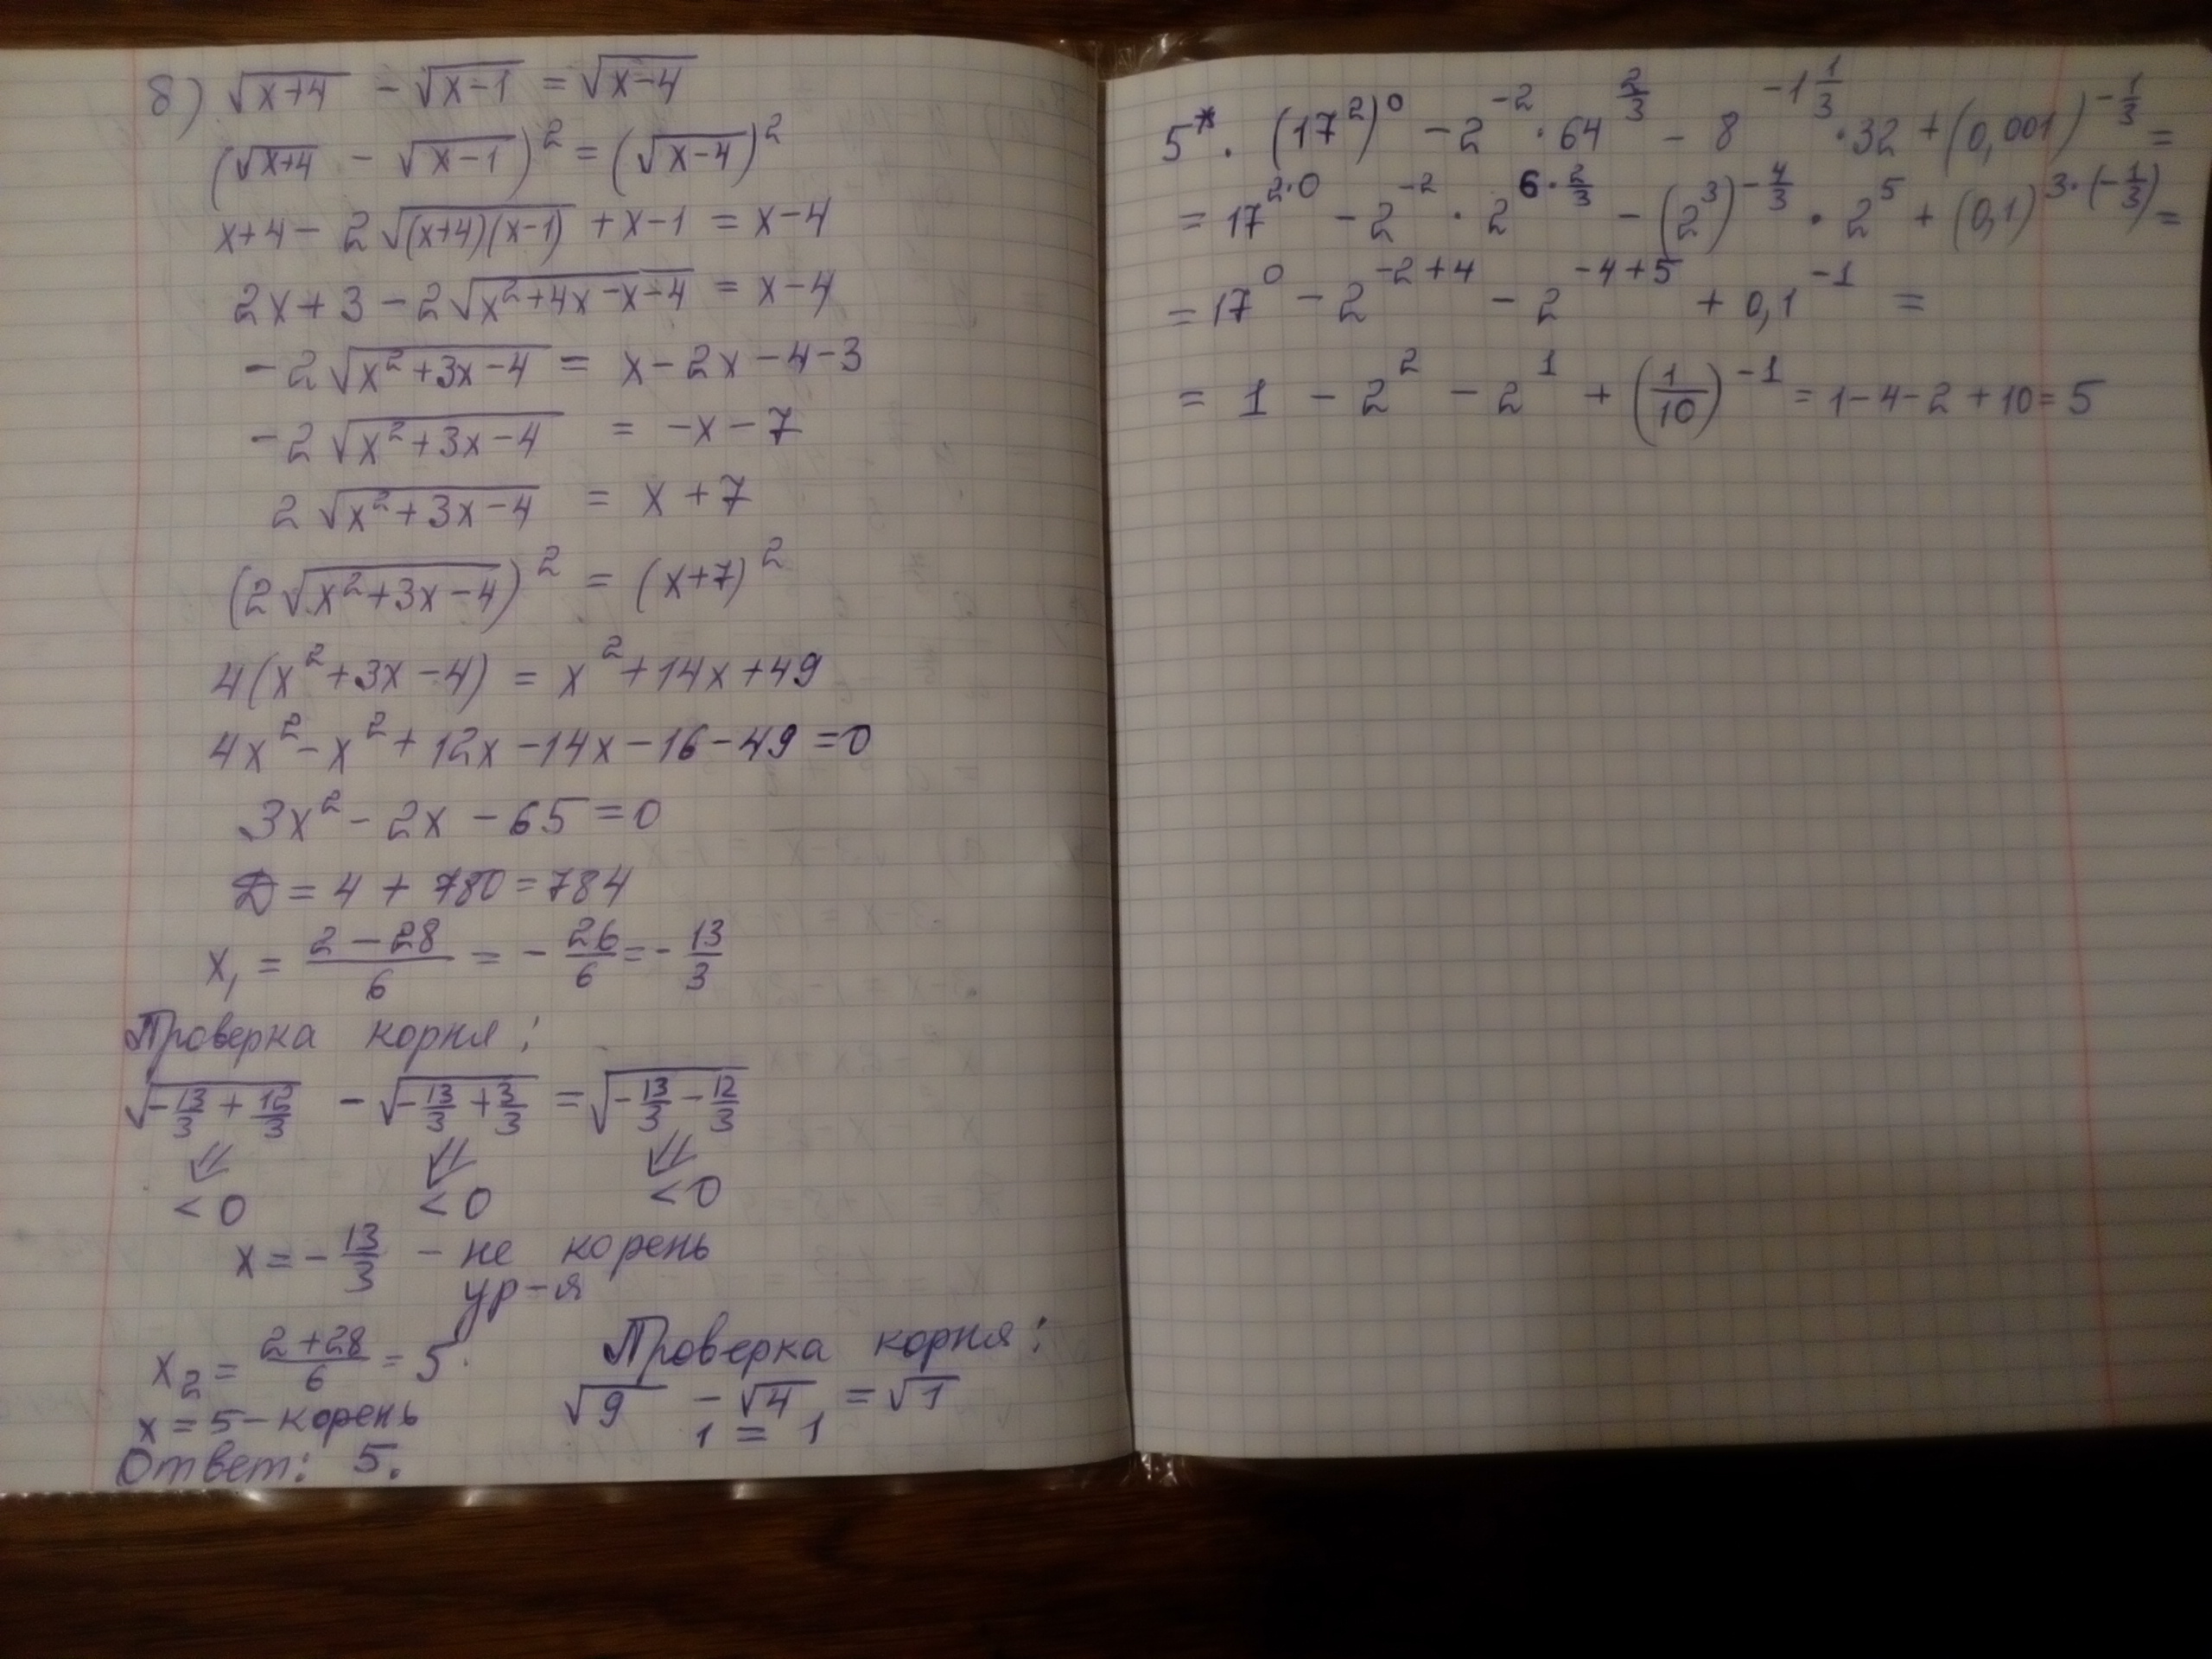 8) √(x+4) - √(x-1) = √(x-4)
(√(x+4) - √(x-1))² = (√(x-4))²
x+4 - 2√((x+4)(x-1)) + x-1 = x-4
2x+3 - 2√(x²+4x-x-4) = x-4
-2√(x²+3x-4) = x-2x-4-3
-2√(x²+3x-4) = -x-7
2√(x²+3x-4) = x+7
(2√(x²+3x-4))² = (x+7)²
4(x²+3x-4) = x²+14x+49
4x²-x²+12x-14x-16-49=0
3x²-2x-65=0
D = 4 + 780 = 784
x₁ = (2-28)/6 = -26/6 = -13/3
Проверка корня:
√(-13/3 + 12/3) - √(-13/3 + 3/3) = √(-13/3 - 12/3)
⇙ ⇙ ⇙
<0 <0 <0
x = -13/3 - не корень
ур-я
x₂ = (2+28)/6 = 5.
x = 5 - корень
Ответ: 5.
Проверка корня:
√9 - √4 = √1
1 = 1
5*. (17²)⁰ - 2⁻² · 64^(2/3) - 8^(-1 1/3) · 32 + (0,001)^(-1/3) =
= 17^(2·0) - 2⁻² · 2^(6·2/3) - (2³)^(-4/3) · 2⁵ + (0,1)^(3·(-1/3)) =
= 17⁰ - 2^(-2+4) - 2^(-4+5) + 0,1⁻¹ =
= 1 - 2² - 2¹ + (1/10)⁻¹ = 1-4-2+10 = 5